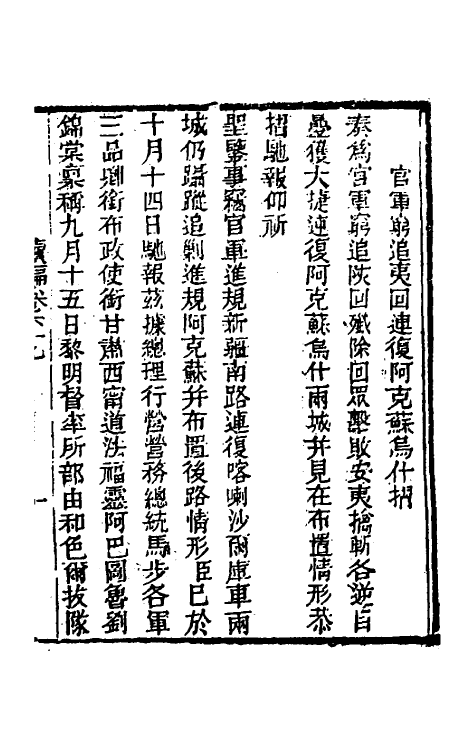 官軍窮追夷回連復阿克蘇烏什摺
奏爲官軍窮追陝回殲除回眾擊敗安夷擒斬各逆首
疊獲大捷連復阿克蘇烏什兩城并見在布置情形恭
摺馳報仰祈
聖鑒事竊官軍進規新疆南路連復喀喇沙爾庫車兩
城仍躡蹤追剿進規阿克蘇并布置後路情形臣已於
十月十四日馳報茲據總理行營營務總統馬步各軍
三品卿銜布政使銜甘肅西甯道法福靈阿巴圖魯劉
錦棠稟稱九月十五日黎明督率所部由和色爾拔隊
續編卷六十九
一